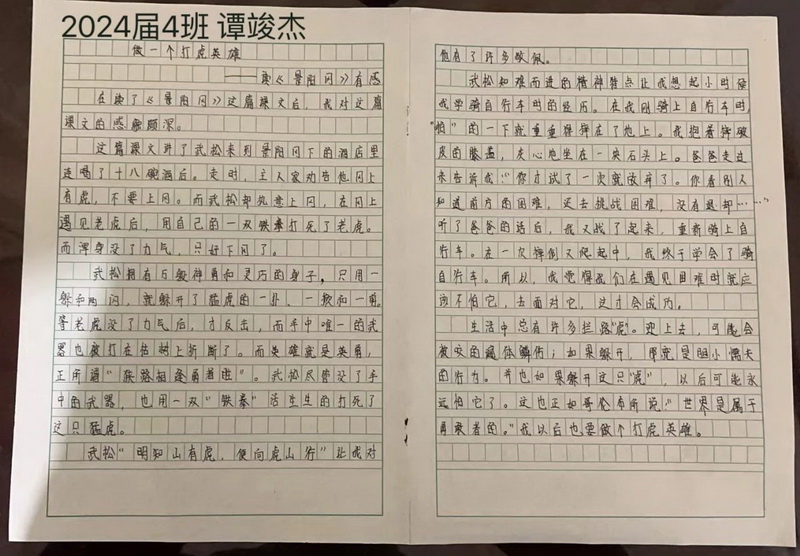 2024届4班 谭竣杰
做一个打虎英雄
——读《景阳冈》有感
在读了《景阳冈》这篇课文后，我对这篇
课文的感触颇深。
这篇课文讲了武松来到景阳冈下的酒店里
连喝了十八碗酒后。走时，主人家劝告他冈上
有虎，不要上冈。而武松却执意上冈，在冈上
遇见老虎后，用自己的一双铁拳打死了老虎。
而浑身没了力气，只好下冈了。
武松拥有万般神勇和灵巧的身子，只用一
躲和两闪，就躲开了猛虎的一扑、一掀和一剪。
等老虎没了力气后，才反击，而手中唯一的武
器也被打在枯树上折断了。而英雄就是英勇，
正所谓"狭路相逢勇者胜"。武松尽管没了手
中的武器，也用一双"铁拳"活生生的打死了
这只猛虎。
武松"明知山有虎，便向虎山行"让我对
他有了许多敬佩。
武松知难而进的精神特点让我想起小时候
我学骑自行车时的经历。在我刚骑上自行车时，
"啪"的一下就重重摔在了地上。我抱着摔破
皮的膝盖，灰心地坐在一块石头上。爸爸走过
来告诉我："你才试了一次就放弃了。你看别人
知道前方的困难，还去挑战困难，没有退却……"
听了爸爸的话后，我又战了起来，重新骑上自
行车。在一次摔倒又爬起中，我终于学会了骑
自行车。所以，我觉得我们在遇见困难时就应
该不怕它，去面对它，这才会成功。
生活中总有许多拦路"虎"。迎上去，可能会
被咬的遍体鳞伤；如果躲开，那就是胆小懦夫
的行为。并也如果躲开这只"虎"，以后可能永
远怕它了。这也正如哥伦布所说："世界是属于
勇敢者的。"我以后也要做个打虎英雄。